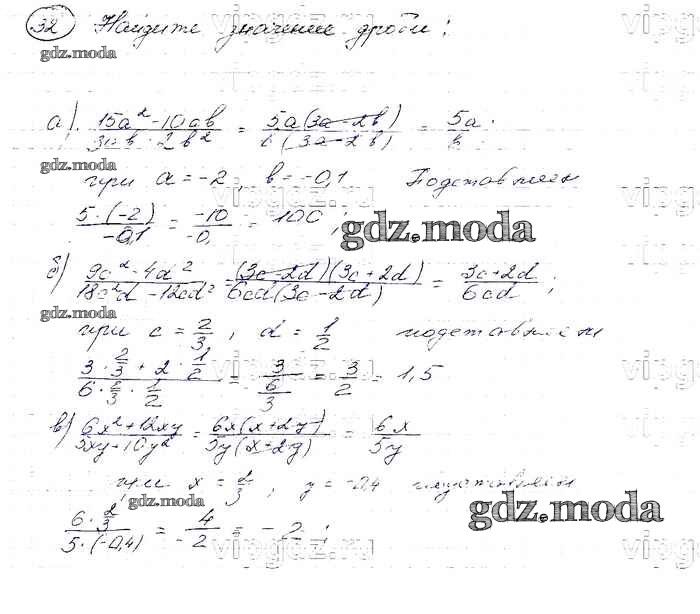 32 Найдите значение дроби:
gdz.moda
а). (15a² - 10ab)/(3ab · 2b²) = (5a(3a - 2b))/(b(3a - 2b)) = 5a/b.
gdz.moda
при a = -2, b = -0,1 Подставляем
(5·(-2))/(-0,1) = (-10)/(-0,) = 100;
gdz.moda
б) (9c² - 4d²)/(18c²d - 12cd²) = ((3c - 2d)(3c + 2d))/(6cd(3c - 2d)) = (3c + 2d)/(6cd);
gdz.moda
при c = 2/3, d = 1/2 подставляем
(3·2/3 + 2·1/2)/(6·2/3·1/2) = 3/(6/3) = 3/2 = 1,5
в) (6x² + 12xy)/(5xy + 10y²) = (6x(x + 2y))/(5y(x + 2y)) = 6x/5y
при x = 2/3, y = -0,4 подставляем
gdz.moda
gdz.moda
(6·2/3)/(5·(-0,4)) = 4/-2 = -2;